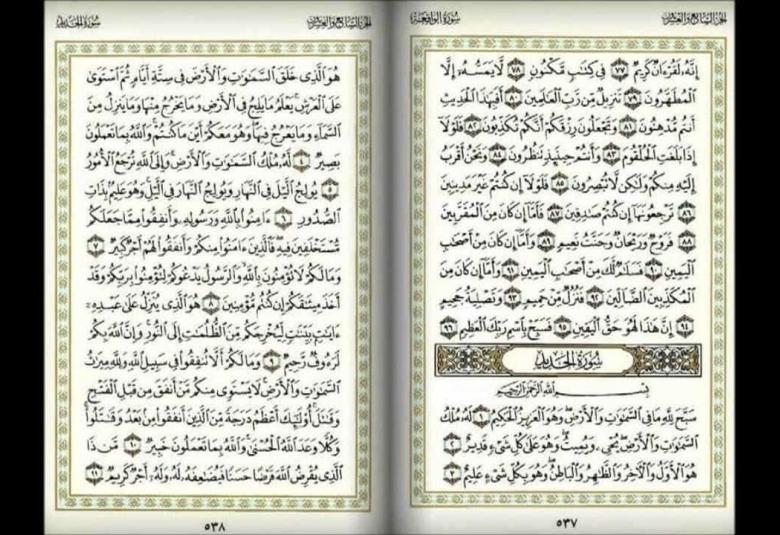 الجزء السابع والعشرون
سورة الواقعة
إِنَّهُۥ لَقُرْءَانٌ كَرِيمٌ ٧٧ فِى كِتَٰبٍ مَّكْنُونٍ ٧٨ لَّا يَمَسُّهُۥٓ إِلَّا
ٱلْمُطَهَّرُونَ ٧٩ تَنزِيلٌ مِّن رَّبِّ ٱلْعَٰلَمِينَ ٨٠ أَفَبِهَٰذَا ٱلْحَدِيثِ
أَنتُم مُّدْهِنُونَ ٨١ وَتَجْعَلُونَ رِزْقَكُمْ أَنَّكُمْ تُكَذِّبُونَ ٨٢ فَلَوْلَآ
إِذَا بَلَغَتِ ٱلْحُلْقُومَ ٨٣ وَأَنتُمْ حِينَئِذٍ تَنظُرُونَ ٨٤ وَنَحْنُ أَقْرَبُ
إِلَيْهِ مِنكُمْ وَلَٰكِن لَّا تُبْصِرُونَ ٨٥ فَلَوْلَآ إِن كُنتُمْ غَيْرَ مَدِينِينَ
٨٦ تَرْجِعُونَهَآ إِن كُنتُمْ صَٰدِقِينَ ٨٧ فَأَمَّآ إِن كَانَ مِنَ ٱلْمُقَرَّبِينَ
٨٨ فَرَوْحٌ وَرَيْحَانٌ وَجَنَّتُ نَعِيمٍ ٨٩ وَأَمَّآ إِن كَانَ مِنْ أَصْحَٰبِ
ٱلْيَمِينِ ٩٠ فَسَلَٰمٌ لَّكَ مِنْ أَصْحَٰبِ ٱلْيَمِينِ ٩١ وَأَمَّآ إِن كَانَ مِنَ
ٱلْمُكَذِّبِينَ ٱلضَّآلِّينَ ٩٢ فَنُزُلٌ مِّنْ حَمِيمٍ ٩٣ وَتَصْلِيَةُ جَحِيمٍ
٩٤ إِنَّ هَٰذَا لَهُوَ حَقُّ ٱلْيَقِينِ ٩٥ فَسَبِّحْ بِٱسْمِ رَبِّكَ ٱلْعَظِيمِ ٩٦
سورة الحديد
بِسْمِ ٱللَّهِ ٱلرَّحْمَٰنِ ٱلرَّحِيمِ
سَبَّحَ لِلَّهِ مَا فِى ٱلسَّمَٰوَٰتِ وَٱلْأَرْضِ وَهُوَ ٱلْعَزِيزُ ٱلْحَكِيمُ ١ لَهُۥ مُلْكُ
ٱلسَّمَٰوَٰتِ وَٱلْأَرْضِ يُحْىِۦ وَيُمِيتُ وَهُوَ عَلَىٰ كُلِّ شَىْءٍ قَدِيرٌ ٢
هُوَ ٱلْأَوَّلُ وَٱلْءَاخِرُ وَٱلظَّٰهِرُ وَٱلْبَاطِنُ وَهُوَ بِكُلِّ شَىْءٍ عَلِيمٌ ٣
٥٣٧
الجزء السابع والعشرون
سورة الحديد
هُوَ ٱلَّذِى خَلَقَ ٱلسَّمَٰوَٰتِ وَٱلْأَرْضَ فِى سِتَّةِ أَيَّامٍ ثُمَّ ٱسْتَوَىٰ
عَلَى ٱلْعَرْشِ يَعْلَمُ مَا يَلِجُ فِى ٱلْأَرْضِ وَمَا يَخْرُجُ مِنْهَا وَمَا يَنزِلُ مِنَ
ٱلسَّمَآءِ وَمَا يَعْرُجُ فِيهَا وَهُوَ مَعَكُمْ أَيْنَ مَا كُنتُمْ وَٱللَّهُ بِمَا تَعْمَلُونَ
بَصِيرٌ ٤ لَّهُۥ مُلْكُ ٱلسَّمَٰوَٰتِ وَٱلْأَرْضِ وَإِلَى ٱللَّهِ تُرْجَعُ ٱلْأُمُورُ
٥ يُولِجُ ٱلَّيْلَ فِى ٱلنَّهَارِ وَيُولِجُ ٱلنَّهَارَ فِى ٱلَّيْلِ وَهُوَ عَلِيمٌۢ بِذَاتِ
ٱلصُّدُورِ ٦ ءَامِنُوا۟ بِٱللَّهِ وَرَسُولِهِۦ وَأَنفِقُوا۟ مِمَّا جَعَلَكُم
مُّسْتَخْلَفِينَ فِيهِ فَٱلَّذِينَ ءَامَنُوا۟ مِنكُمْ وَأَنفَقُوا۟ لَهُمْ أَجْرٌ كَبِيرٌ ٧
وَمَا لَكُمْ لَا تُؤْمِنُونَ بِٱللَّهِ وَٱلرَّسُولُ يَدْعُوكُمْ لِتُؤْمِنُوا۟ بِرَبِّكُمْ وَقَدْ
أَخَذَ مِيثَٰقَكُمْ إِن كُنتُم مُّؤْمِنِينَ ٨ هُوَ ٱلَّذِى يُنَزِّلُ عَلَىٰ عَبْدِهِۦٓ
ءَايَٰتٍۭ بَيِّنَٰتٍ لِّيُخْرِجَكُم مِّنَ ٱلظُّلُمَٰتِ إِلَى ٱلنُّورِ وَإِنَّ ٱللَّهَ بِكُمْ
لَرَءُوفٌ رَّحِيمٌ ٩ وَمَا لَكُمْ أَلَّا تُنفِقُوا۟ فِى سَبِيلِ ٱللَّهِ وَلِلَّهِ مِيرَٰثُ
ٱلسَّمَٰوَٰتِ وَٱلْأَرْضِ لَا يَسْتَوِى مِنكُم مَّنْ أَنفَقَ مِن قَبْلِ ٱلْفَتْحِ
وَقَٰتَلَ أُو۟لَٰٓئِكَ أَعْظَمُ دَرَجَةً مِّنَ ٱلَّذِينَ أَنفَقُوا۟ مِنۢ بَعْدُ وَقَٰتَلُوا۟
وَكُلًّا وَعَدَ ٱللَّهُ ٱلْحُسْنَىٰ وَٱللَّهُ بِمَا تَعْمَلُونَ خَبِيرٌ ١٠ مَّن ذَا
ٱلَّذِى يُقْرِضُ ٱللَّهَ قَرْضًا حَسَنًا فَيُضَٰعِفَهُۥ لَهُۥ وَلَهُۥٓ أَجْرٌ كَرِيمٌ ١١
٥٣٨